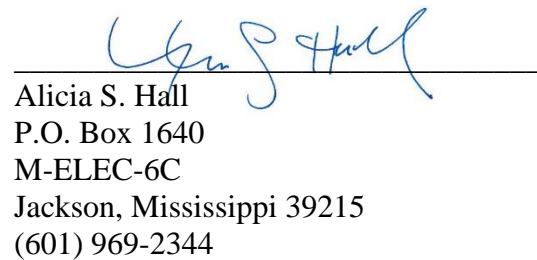 Alicia S. Hall
P.O. Box 1640
M-ELEC-6C
Jackson, Mississippi 39215
(601) 969-2344